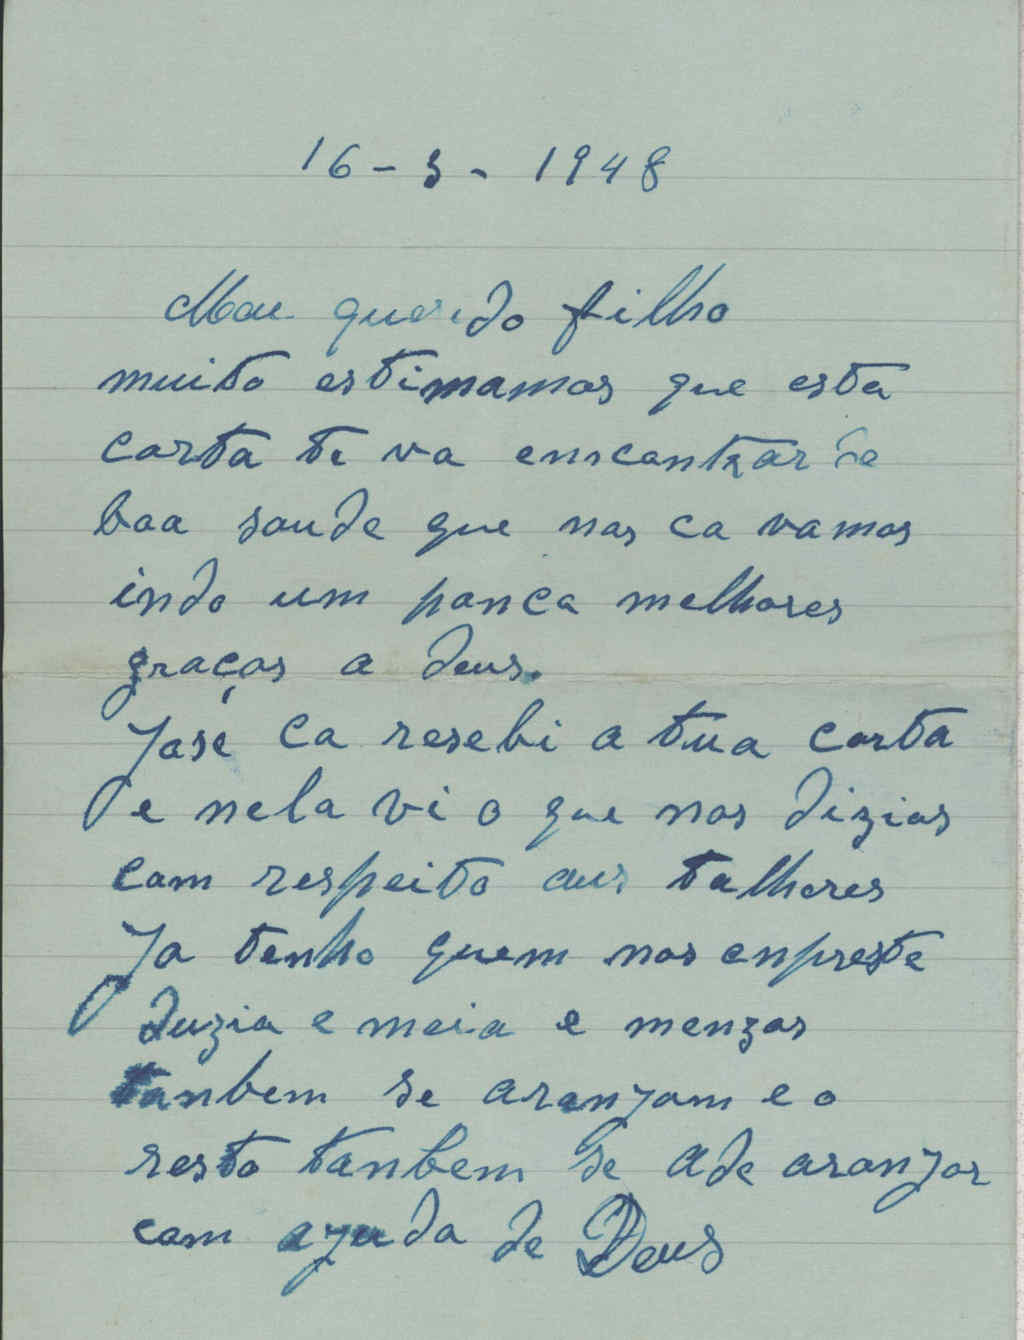 16-3-1948
Meu querido filho
muito estimamos que esta
carta te va encontrar de
boa saude que nos ca vamos
indo um pouca melhores
graças a deus.
José ca resebi a tua carta
e nela vi o que nos dizias
com respeito aus talheres
Ja tenho quem nos enpreste
duzia e meia e menzas
tanbem se aranjam e o
resto tanbem se ade aranjar
com ajuda de Deus